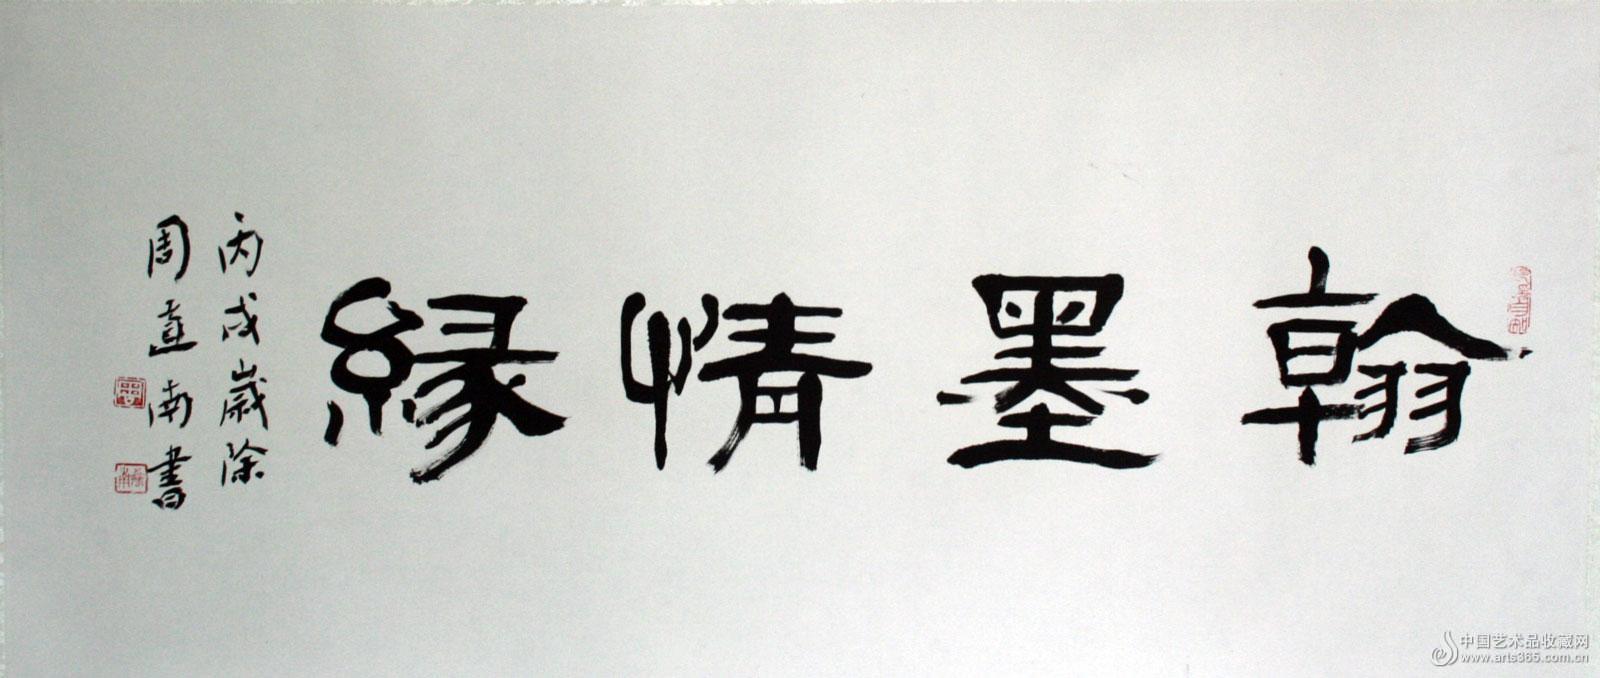 翰墨情緣
丙戌歲除
周直南書
中国艺术品收藏网
www.arts365.com.cn